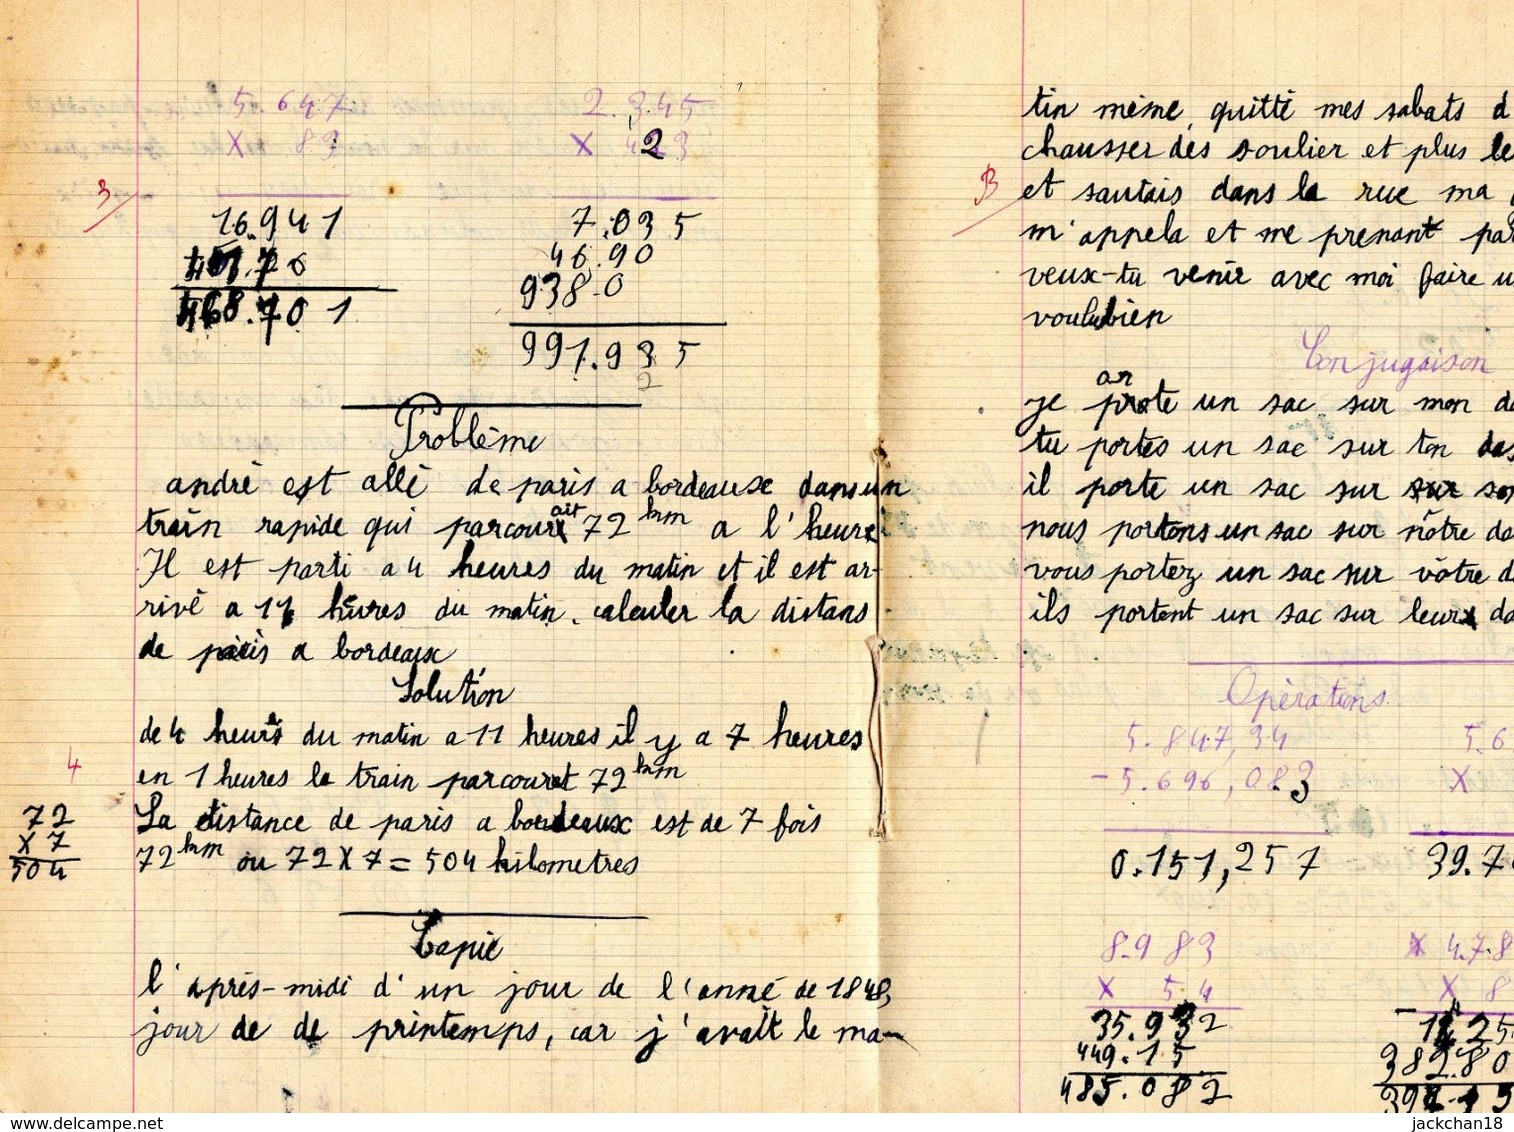 5.647
X 83
16.941
2.345
X 423
7.035
46.90
938.0
991.935
2
3
Problème
andré est allé de paris a bordeause dans un
train rapide qui parcourait 72 km a l'heure
Il est parti a 4 heures du matin et il est ar-
rivé a 11 heures du matin. calculer la distans
de paris a bordeaux
Solution
de 4 heurs du matin a 11 heures il y a 7 heures
4
en 1 heures le train parcouret 72 km
La distance de paris a bordeaux est de 7 fois
72 km ou 72 X 7 = 504 kilometres
72
X 7
504
Copie
l'après-midi d'un jour de l'anné de 1848,
jour de de printemps, car j'avait le ma-
tin même, quitté mes sabats d
chausser des soulier et plus le
B
et sautais dans la rue ma
m'appela et me prenant par
veux-tu venir avec moi faire u
voulubien
Conjugaison
ar
je prote un sac sur mon do
tu portes un sac sur ton dos
il porte un sac sur sur son
nous portons un sac sur nôtre do
vous portez un sac sur vôtre d
ils portent un sac sur leurs do
Opérations
5.847,34
-5.696,083
0.151,257
5.6
X
39.7
8.983
X 54
35.932
449.15
485.082
X 4.78
X 8
382.80
delcampe.net
jackchan18